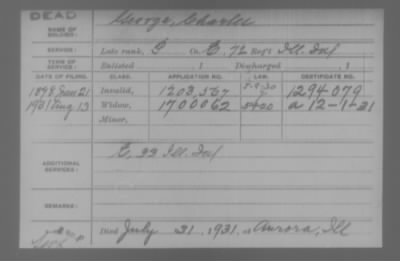 DEAD
NAME OF SOLDIER:
George, Charles
SERVICE: Late rank, P Co. E, 72 Reg't Ill. Inf
TERM OF SERVICE: Enlisted , 1 Discharged , 1
DATE OF FILING. CLASS. APPLICATION NO. LAW. CERTIFICATE NO.
1898 21 Invalid, 1203,567 5-9-30 1294079
1931 Aug 13 Widow, 1700062 5400 a 12-1-31
Minor,
ADDITIONAL SERVICES:
E, 33 Ill. Inf
REMARKS:
Died July 31, 1931, at Aurora, Ill